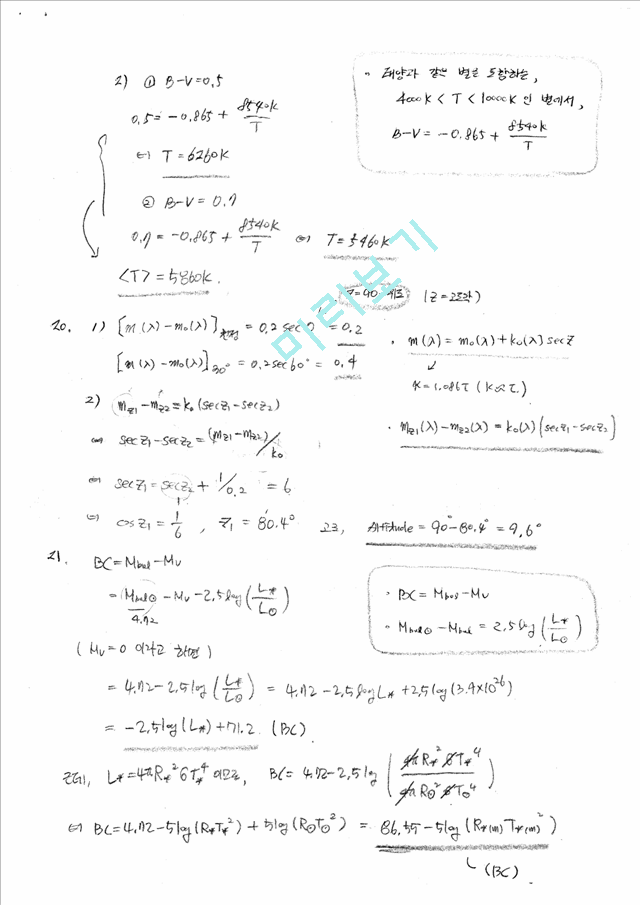 2) ① B-V=0.5
0.5 = -0.865 + 8540K/T
⇔ T = 6260K
② B-V = 0.7
0.7 = -0.865 + 8540K/T ⇔ T = 5460K
<T> = 5860K.
· 태양과 같은 별을 포함하는,
4000K < T < 10000K 인 별에서,
B-V = -0.865 + 8540K/T
미리보기
(Z = 고도각)
20. 1) [m(λ)-m₀(λ)]천정 = 0.2 sec 0 = 0.2
[m(λ)-m₀(λ)]30° = 0.2 sec 60° = 0.4
· m(λ) = m₀(λ) + k₀(λ) sec Z
K = 1.086τ (K∝τ.)
2) mz1 - mz2 = k₀ (sec z₁ - sec z₂)
⇔ sec z₁ - sec z₂ = (mz1 - mz2)/k₀
· mz1(λ) - mz2(λ) = k₀(λ) (sec z₁ - sec z₂)
⇔ sec z₁ = sec z₂ + 1/0.2 = 6
1
⇔ cos z₁ = 1/6 , z₁ = 80.4° 고로, Altitude = 90° - 80.4° = 9.6°
21. BC = Mbol - Mv
= Mbol⊙ - Mv - 2.5 log (L*/L⊙)
4.72
· BC = Mbol - Mv
· Mbol⊙ - Mbol = 2.5 log (L*/L⊙)
( Mv = 0 이라고 하면 )
= 4.72 - 2.5 log (L*/L⊙) = 4.72 - 2.5 log L* + 2.5 log (3.9×10²⁶)
= -2.5 log (L*) + 71.2. (BC)
L* = 4πR*²σT*⁴ 이므로, BC = 4.72 - 2.5 log (4πR*²σT*⁴ / 4πR⊙²σT⊙⁴)
⇔ BC = 4.72 - 5 log (R*T*²) + 5 log (R⊙T⊙²) = 86.55 - 5 log (R*(m) T*(m)²)
(BC)